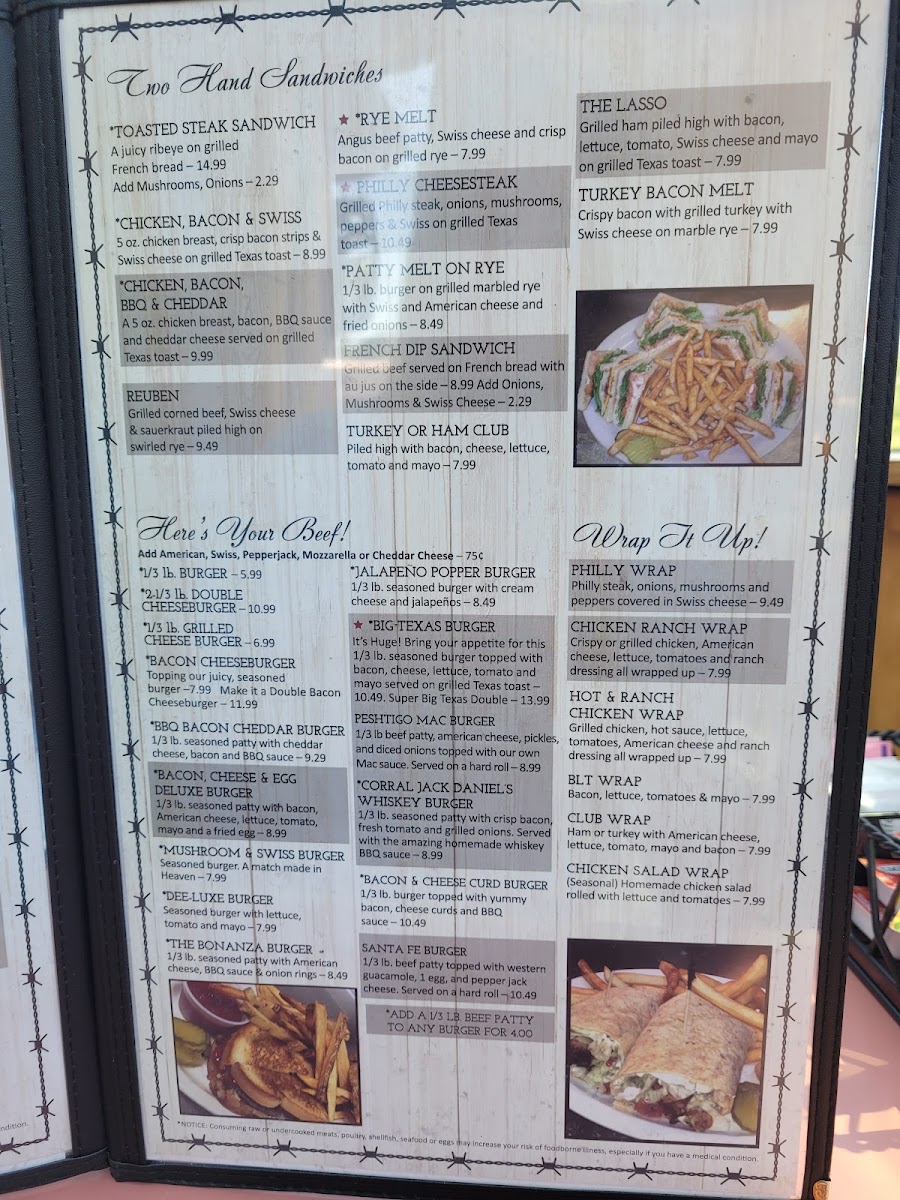 Two Hand Sandwiches
*TOASTED STEAK SANDWICH
A juicy ribeye on grilled
French bread – 14.99
Add Mushrooms, Onions – 2.29
*CHICKEN, BACON & SWISS
5 oz. chicken breast, crisp bacon strips &
Swiss cheese on grilled Texas toast – 8.99
*CHICKEN, BACON,
BBQ & CHEDDAR
A 5 oz. chicken breast, bacon, BBQ sauce
and cheddar cheese served on grilled
Texas toast – 9.99
REUBEN
Grilled corned beef, Swiss cheese
& sauerkraut piled high on
swirled rye – 9.49
★ *RYE MELT
Angus beef patty, Swiss cheese and crisp
bacon on grilled rye – 7.99
★ PHILLY CHEESESTEAK
Grilled Philly steak, onions, mushrooms,
peppers & Swiss on grilled Texas
toast – 10.49
*PATTY MELT ON RYE
1/3 lb. burger on grilled marbled rye
with Swiss and American cheese and
fried onions – 8.49
FRENCH DIP SANDWICH
Grilled beef served on French bread with
au jus on the side – 8.99 Add Onions,
Mushrooms & Swiss Cheese – 2.29
TURKEY OR HAM CLUB
Piled high with bacon, cheese, lettuce,
tomato and mayo – 7.99
THE LASSO
Grilled ham piled high with bacon,
lettuce, tomato, Swiss cheese and mayo
on grilled Texas toast – 7.99
TURKEY BACON MELT
Crispy bacon with grilled turkey with
Swiss cheese on marble rye – 7.99
Here's Your Beef!
Add American, Swiss, Pepperjack, Mozzarella or Cheddar Cheese – 75¢
*1/3 lb. BURGER – 5.99
*2-1/3 lb. DOUBLE
CHEESEBURGER – 10.99
*1/3 lb. GRILLED
CHEESE BURGER – 6.99
*BACON CHEESEBURGER
Topping our juicy, seasoned
burger –7.99 Make it a Double Bacon
Cheeseburger – 11.99
*BBQ BACON CHEDDAR BURGER
1/3 lb. seasoned patty with cheddar
cheese, bacon and BBQ sauce – 9.29
*BACON, CHEESE & EGG
DELUXE BURGER
1/3 lb. seasoned patty with bacon,
American cheese, lettuce, tomato,
mayo and a fried egg – 8.99
*MUSHROOM & SWISS BURGER
Seasoned burger. A match made in
Heaven – 7.99
*DEE-LUXE BURGER
Seasoned burger with lettuce,
tomato and mayo – 7.99
*THE BONANZA BURGER –
1/3 lb. seasoned patty with American
cheese, BBQ sauce & onion rings – 8.49
*JALAPEÑO POPPER BURGER
1/3 lb. seasoned burger with cream
cheese and jalapeños – 8.49
★ *BIG TEXAS BURGER
It's Huge! Bring your appetite for this
1/3 lb. seasoned burger topped with
bacon, cheese, lettuce, tomato and
mayo served on grilled Texas toast –
10.49. Super Big Texas Double – 13.99
PESHTIGO MAC BURGER
1/3 lb beef patty, american cheese, pickles,
and diced onions topped with our own
Mac sauce. Served on a hard roll – 8.99
*CORRAL JACK DANIEL'S
WHISKEY BURGER
1/3 lb. seasoned patty with crisp bacon,
fresh tomato and grilled onions. Served
with the amazing homemade whiskey
BBQ sauce – 8.99
*BACON & CHEESE CURD BURGER
1/3 lb. burger topped with yummy
bacon, cheese curds and BBQ
sauce – 10.49
SANTA FE BURGER
1/3 lb. beef patty topped with western
guacamole, 1 egg, and pepper jack
cheese. Served on a hard roll – 10.49
*ADD A 1/3 LB. BEEF PATTY
TO ANY BURGER FOR 4.00
Wrap It Up!
PHILLY WRAP
Philly steak, onions, mushrooms and
peppers covered in Swiss cheese – 9.49
CHICKEN RANCH WRAP
Crispy or grilled chicken, American
cheese, lettuce, tomatoes and ranch
dressing all wrapped up – 7.99
HOT & RANCH
CHICKEN WRAP
Grilled chicken, hot sauce, lettuce,
tomatoes, American cheese and ranch
dressing all wrapped up – 7.99
BLT WRAP
Bacon, lettuce, tomatoes & mayo – 7.99
CLUB WRAP
Ham or turkey with American cheese,
lettuce, tomato, mayo and bacon – 7.99
CHICKEN SALAD WRAP
(Seasonal) Homemade chicken salad
rolled with lettuce and tomatoes – 7.99
*NOTICE: Consuming raw or undercooked meats, poultry, shellfish, seafood or eggs may increase your risk of foodborne illness, especially if you have a medical condition.
ndition.